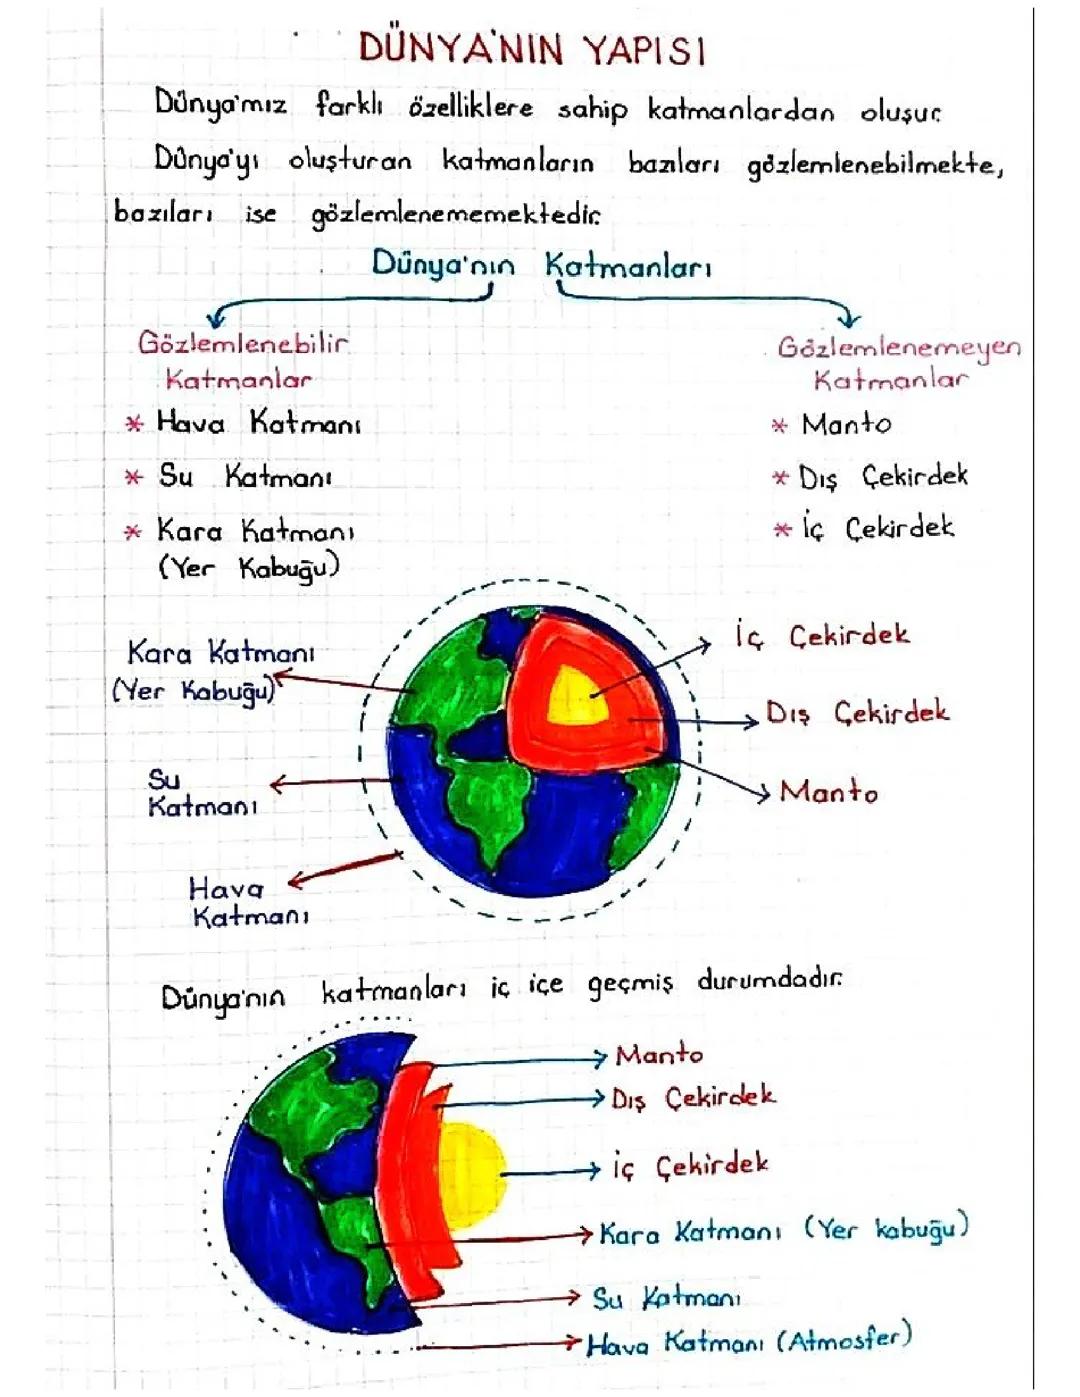 DÜNYA'NIN YAPISI
Dünya'mız farklı özelliklere sahip katmanlardan oluşur.
Dünya'yı oluşturan katmanların bazıları gözlemlenebilmekte,
bazıları ise gözlemlenememektedir.
Dünya'nın Katmanları
Gözlemlenebilir
Katmanlar
* Hava Katmanı
* Su Katmanı
* Kara Katmanı
(Yer Kabuğu)
Gözlemlenemeyen
Katmanlar
* Manto
* Dış Çekirdek
* İç Çekirdek
Kara Katmanı
(Yer Kabuğu)
Su
Katmanı
Hava
Katmanı
İç Çekirdek
Dış Çekirdek
Manto
Dünya'nın katmanları iç içe geçmiş durumdadır.
Manto
Dış Çekirdek
İç Çekirdek
Kara Katmanı (Yer kabuğu)
Su Katmanı
Hava Katmanı (Atmosfer)